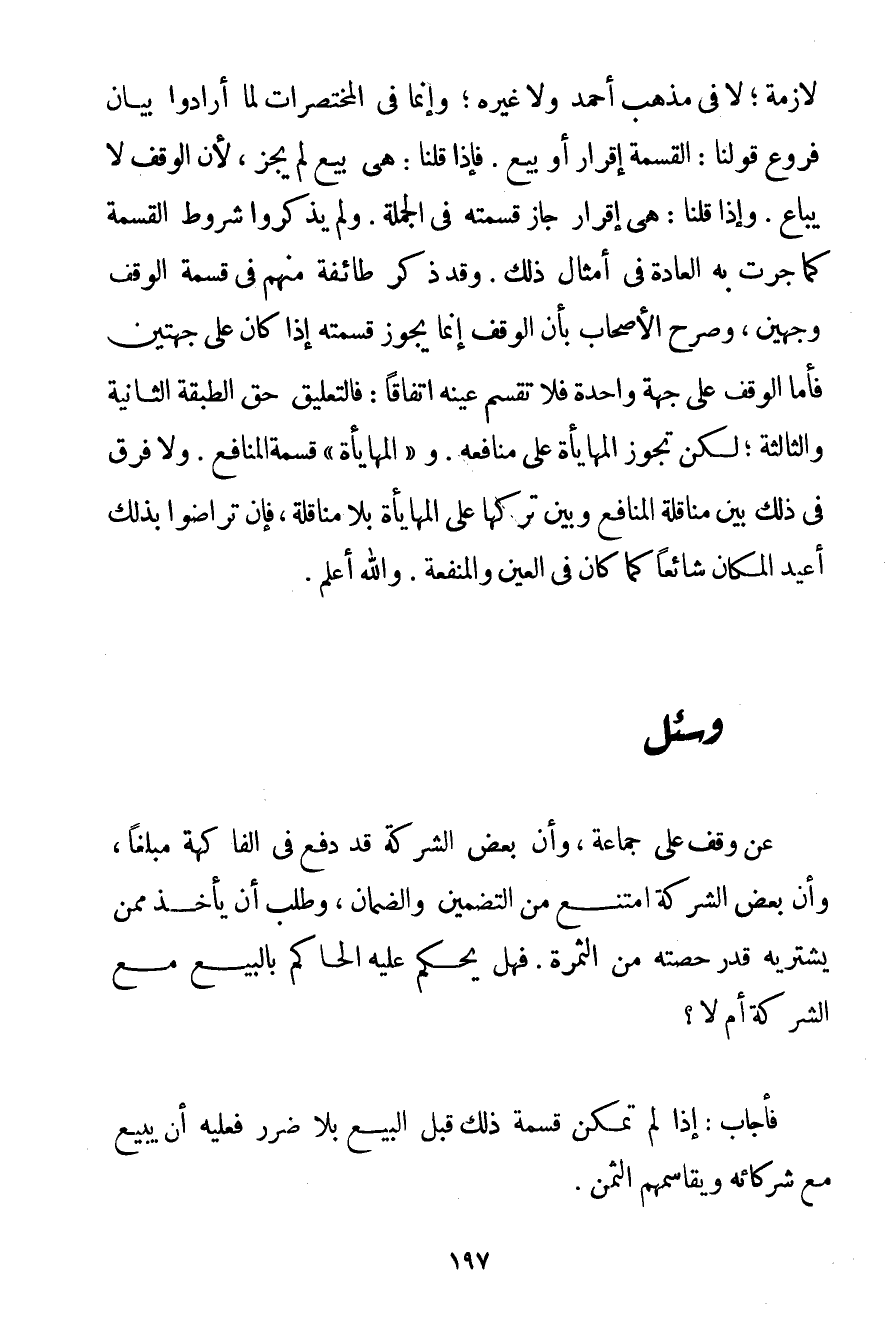 لازمة ؛ لا فى مذهب أحمد ولا غيره ؛ وإنما فى المختصرات لما أرادوا بيان
فروع قولنا : القسمة إقرار أو بيع . فإذا قلنا : هى بيع لم يجز ، لأن الوقف لا
يباع . وإذا قلنا : هى إقرار جاز قسمته فى الجملة . ولم يذكروا شروط القسمة
كما جرت به العادة فى أمثال ذلك . وقد ذكر طائفة منهم فى قسمة الوقف
وجهين ، وصرح الأصحاب بأن الوقف إنما يجوز قسمته إذا كان على جهتين
فأما الوقف على جهة واحدة فلا تقسم عينه اتفاقاً : فالتعليق حق الطبقة الثانية
والثالثة ؛ لكن تجوز المهايأة على منافعه . و « المهايأة » قسمة المنافع . ولا فرق
فى ذلك بين مناقلة المنافع وبين تركها على المهايأة بلا مناقلة ، فإن تراضوا بذلك
أعيد المكان شائعاً كما كان فى العين والمنفعة . والله أعلم .
وسئل
عن وقف على جماعة ، وأن بعض الشركة قد دفع فى الفاكهة مبلغاً ،
وأن بعض الشركة امتنع من التضمين والضمان ، وطلب أن يأخذ ممن
يشتريه قدر حصته من الثمرة . فهل يحكم عليه الحاكم بالبيع مع
الشركة أم لا ؟
فأجاب : إذا لم تمكن قسمة ذلك قبل البيع بلا ضرر فعليه أن يبيع
مع شركائه ويقاسمهم الثمن .
١٩٧